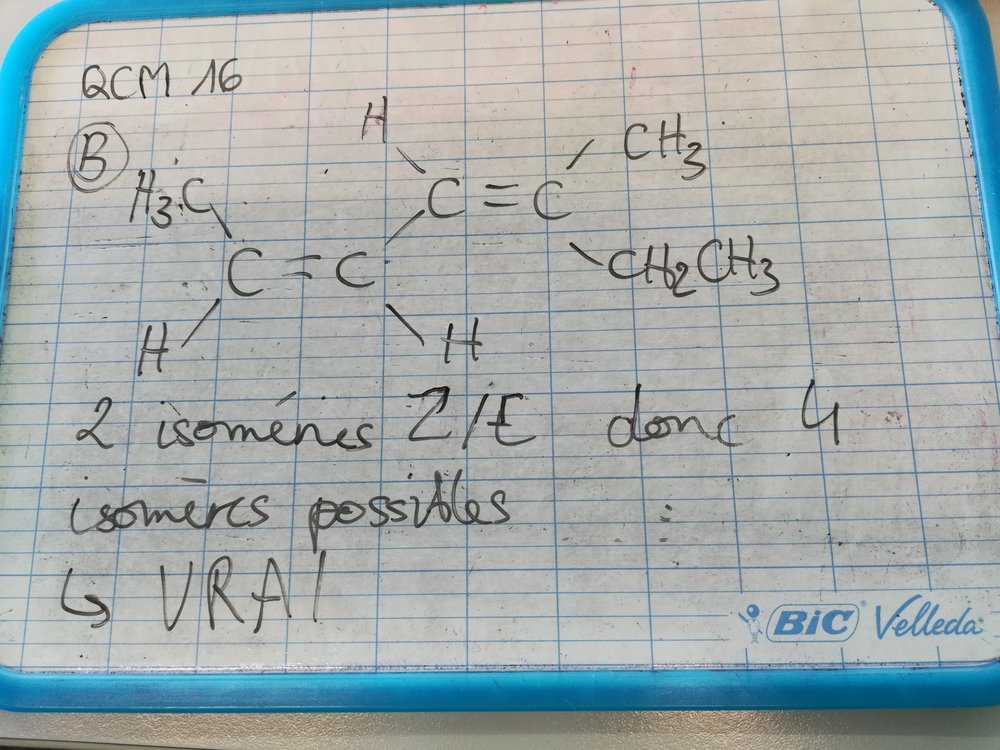 QCM 16
B
H CH3
H3C C=C
C=C CH2CH3
H H
2 isoméries Z/E donc 4
isomères possibles
↳ VRAI
BIC Velleda